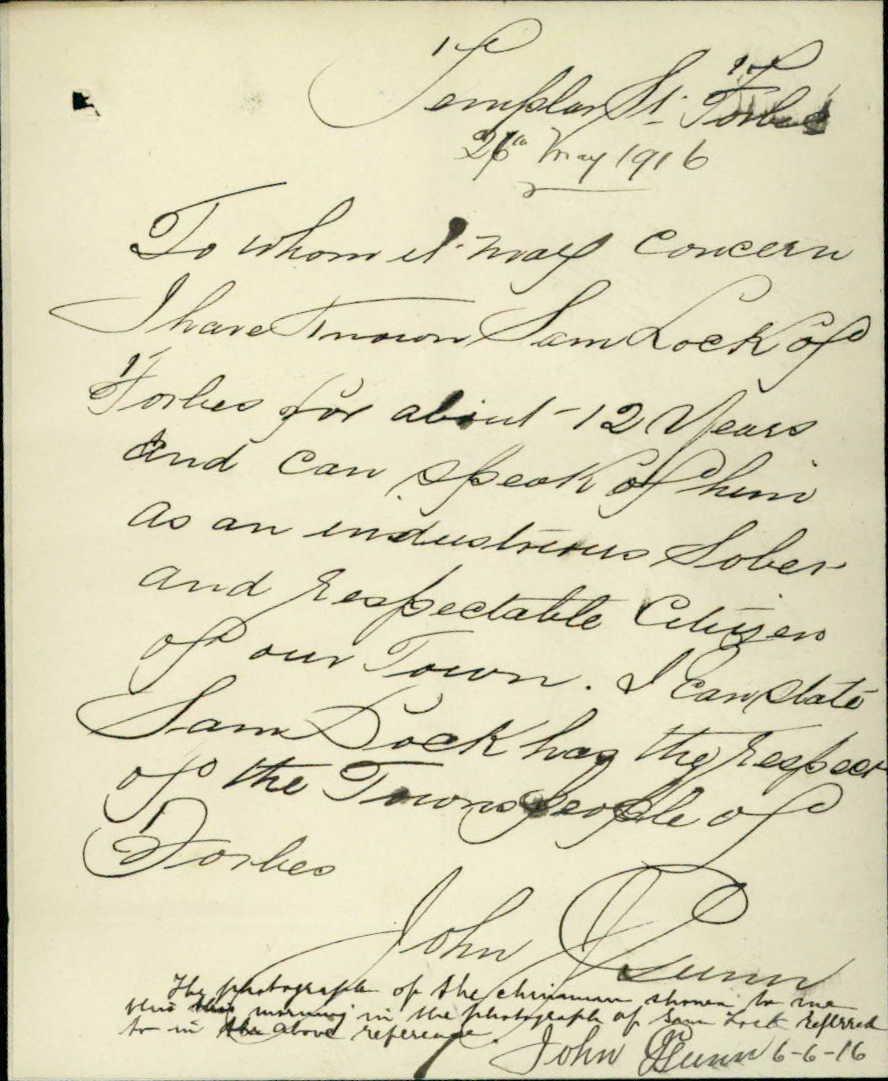 Templar St. Forbes
26th May 1916
To whom it may Concern
I have Known Sam Lock of
Forbes for about 12 Years
and can speak of him
as an industrious Sober
and respectable Citizen
of our Town. I can state
Sam Lock has the respect
of the Towns people of
Forbes
John Gunn
The photograph of the chinaman shown to me
this morning in the photograph of Sam Lock referred
to in the above reference.
John Gunn 6-6-16